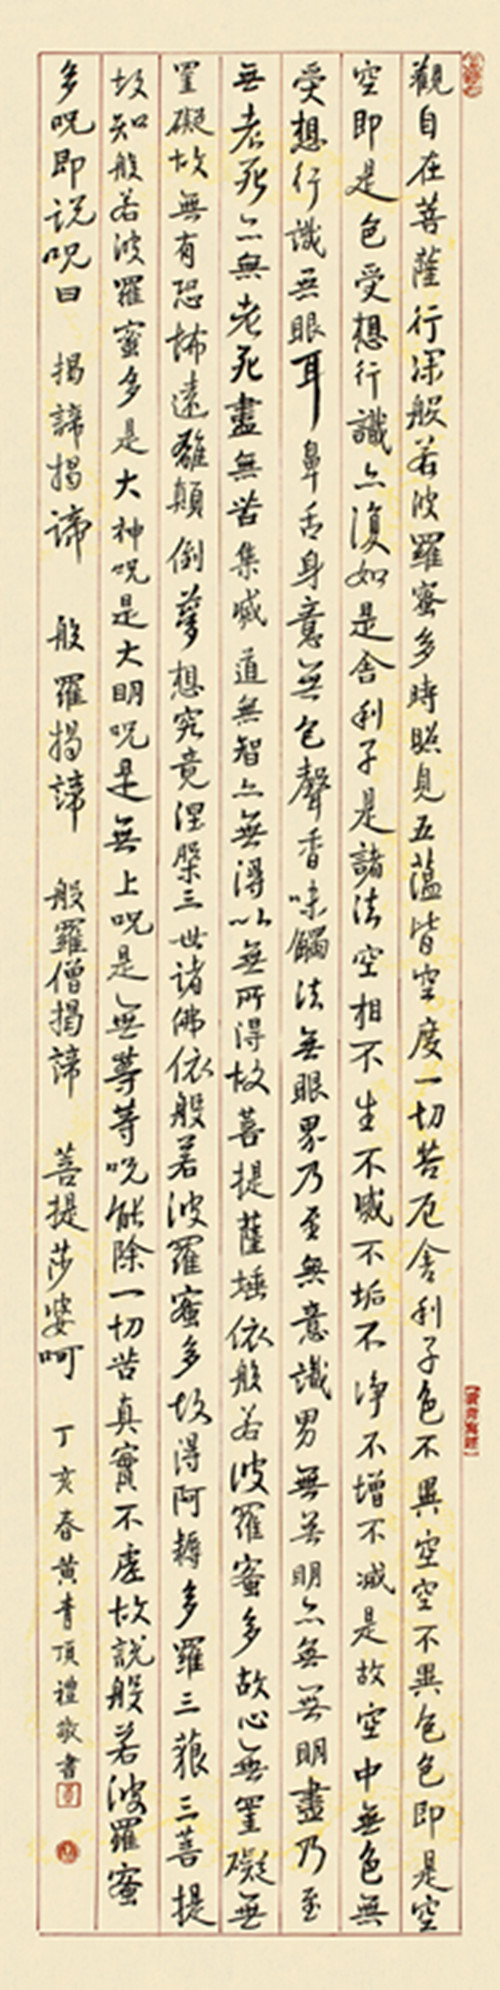 觀自在菩薩行深般若波羅蜜多時照見五蘊皆空度一切苦厄舍利子色不異空空不異色色即是空
空即是色受想行識亦復如是舍利子是諸法空相不生不滅不垢不淨不增不減是故空中無色無
受想行識無眼耳鼻舌身意無色聲香味觸法無眼界乃至無意識界無無明亦無無明盡乃至
無老死亦無老死盡無苦集滅道無智亦無得以無所得故菩提薩埵依般若波羅蜜多故心無罣礙無
罣礙故無有恐怖遠離顛倒夢想究竟涅槃三世諸佛依般若波羅蜜多故得阿耨多羅三藐三菩提
故知般若波羅蜜多是大神呪是大明呪是無上呪是無等等呪能除一切苦真實不虛故說般若波羅蜜
多呪即说呪曰 揭諦揭諦 般羅揭諦 般羅僧揭諦 菩提莎婆呵 丁亥春黃青頂禮敬書